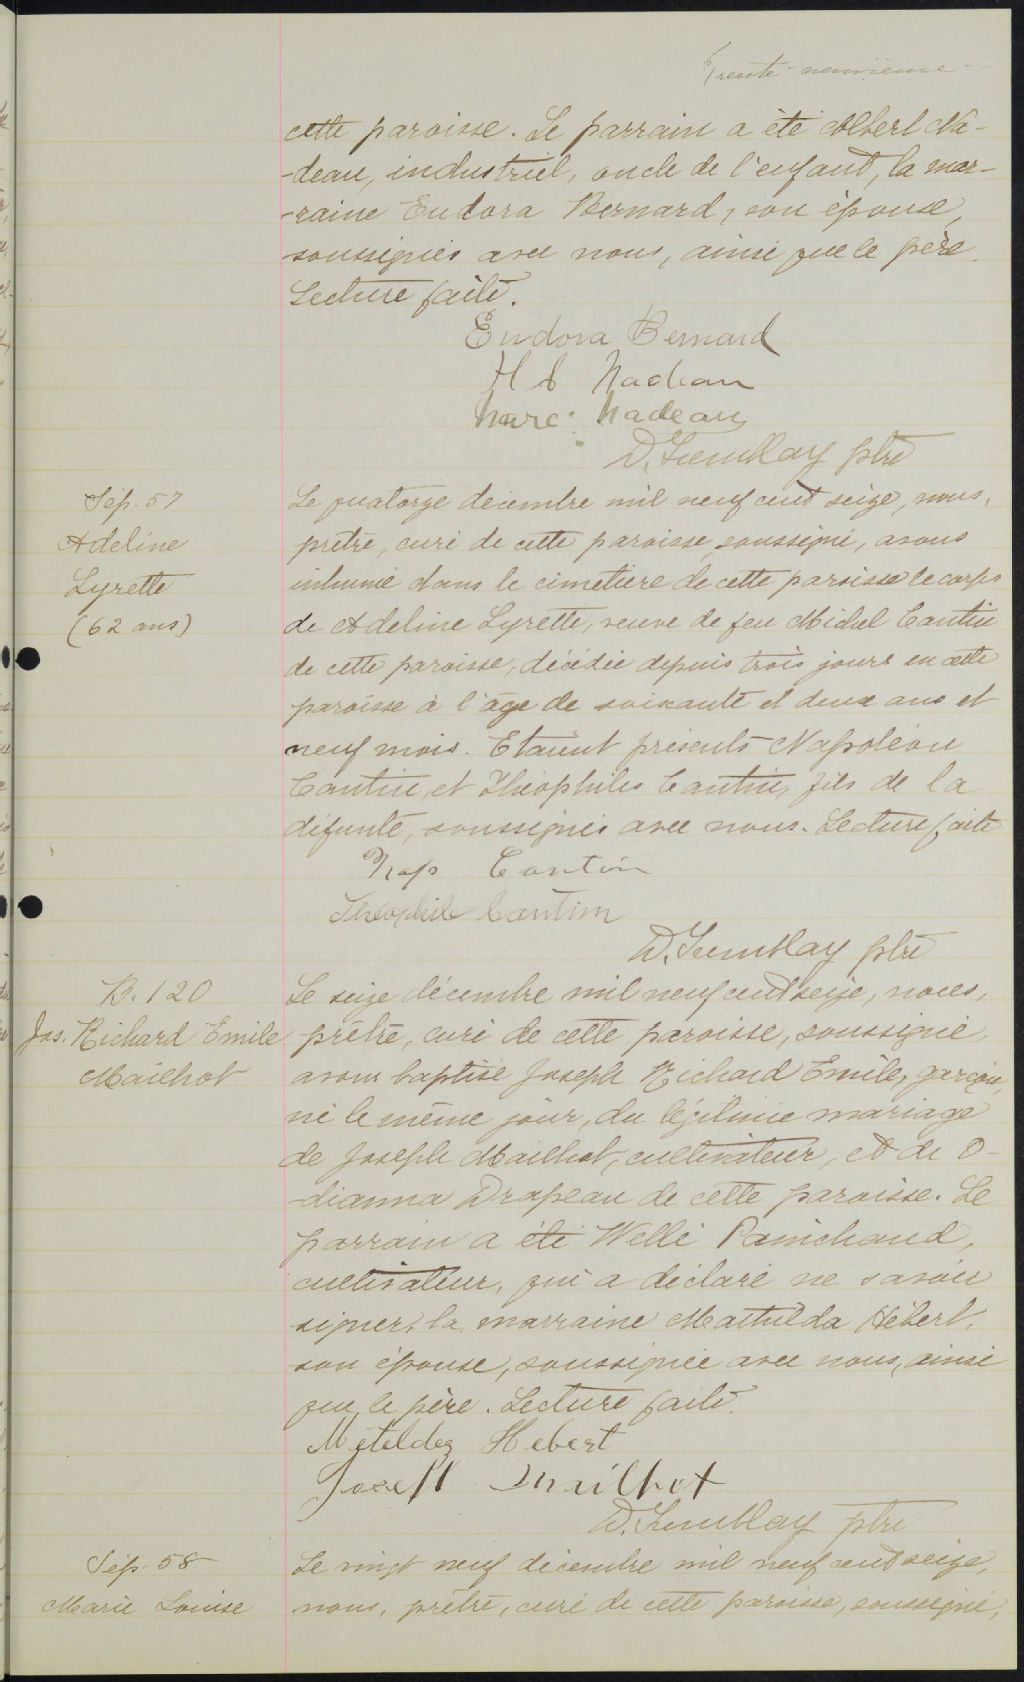 Trente-neuvième
cette paroisse. Le parrain a été Albert Na-
-deau, industriel, oncle de l'enfant, la mar-
-raine Eudora Bernard, son épouse,
soussignés avec nous, ainsi que le père.
Lecture faite.
Eudora Bernard
H A Nadeau
Marc Nadeau
D. Tremblay ptre
Sép. 57
Adeline
Lyrette
(62 ans)
Le quatorze décembre mil neuf cent seize, nous,
prêtre, curé de cette paroisse soussigné, avons
inhumé dans le cimetière de cette paroisse le corps
de Adeline Lyrette, veuve de feu Michel Cantin
de cette paroisse, décédée depuis trois jours en cette
paroisse à l'âge de soixante et deux ans et
neuf mois. Etaient présents Napoléon
Cantin, et Théophiles Cantin, fils de la
défunte, soussignés avec nous. Lecture faite
Nap Cantin
Théophile Cantin
D. Tremblay ptre
B. 120
Jos. Richard Emile
Mailhot
Le seize décembre mil neuf cent seize, nous,
prêtre, curé de cette paroisse, soussigné,
avons baptisé Joseph Richard Emile, garçon,
né le même jour, du légitime mariage
de Joseph Mailhot, cultivateur, et de O-
-dianna Drapeau de cette paroisse. Le
parrain a été Wellé Painchaud,
cultivateur, qui a déclaré ne savoir
signer, la marraine Mathilda Hébert,
son épouse, soussignée avec nous, ainsi
que le père. Lecture faite.
Metelda Hebert
Joseph Mailhot
D. Tremblay ptre
Sép. 58
Marie Louise
Le vingt neuf décembre mil neuf cent seize,
nous, prêtre, curé de cette paroisse, soussigné,